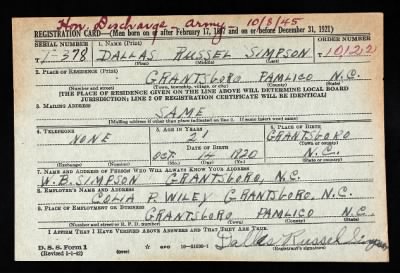 Hon. Discharge, Army 10/8/45
REGISTRATION CARD—(Men born on or after February 17, 1897 and on or before December 31, 1921)
SERIAL NUMBER 1. NAME (Print) ORDER NUMBER
T-378 DALLAS RUSSEL SIMPSON 10122
(First) (Middle) (Last)
2. PLACE OF RESIDENCE (Print)
GRANTSBORO PAMLICO N.C.
(Number and street) (Town, township, village, or city) (County) (State)
[THE PLACE OF RESIDENCE GIVEN ON THE LINE ABOVE WILL DETERMINE LOCAL BOARD
JURISDICTION; LINE 2 OF REGISTRATION CERTIFICATE WILL BE IDENTICAL]
3. MAILING ADDRESS
SAME
[Mailing address if other than place indicated on line 2. If same insert word same]
4. TELEPHONE 5. AGE IN YEARS 6. PLACE OF BIRTH
NONE 21 GRANTSBORO
DATE OF BIRTH (Town or county)
OCT. 14 1920 N.C.
(Exchange) (Number) (Mo.) (Day) (Yr.) (State or country)
7. NAME AND ADDRESS OF PERSON WHO WILL ALWAYS KNOW YOUR ADDRESS
W.B. SIMPSON GRANTSBORO, N.C.
8. EMPLOYER'S NAME AND ADDRESS
P. WILEY GRANTSBORO, N.C.
9. PLACE OF EMPLOYMENT OR BUSINESS
GRANTSBORO PAMLICO N.C.
(Number and street or R. F. D. number) (Town) (County) (State)
I AFFIRM THAT I HAVE VERIFIED ABOVE ANSWERS AND THAT THEY ARE TRUE.
D. S. S. Form 1 (over) GPO 16—21630-1 Dallas Russel Simpson
(Revised 1-1-42) (Registrant's signature)